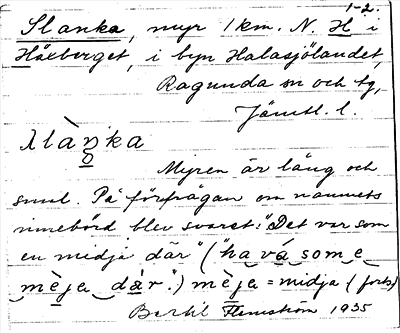 1-2.
Slanka, myr 1 km. N. H i
Håxberget, i byn Halasjölandet,
Ragunda sn och tg,
Jämtl. l.
Myren är lång och
smal. På förfrågan om namnets
innebörd blev svaret: "Det var som
en midja där" ("ha vá som e
mèja dàr".) mèja = midja (forts)
Bertil Flemström 1935